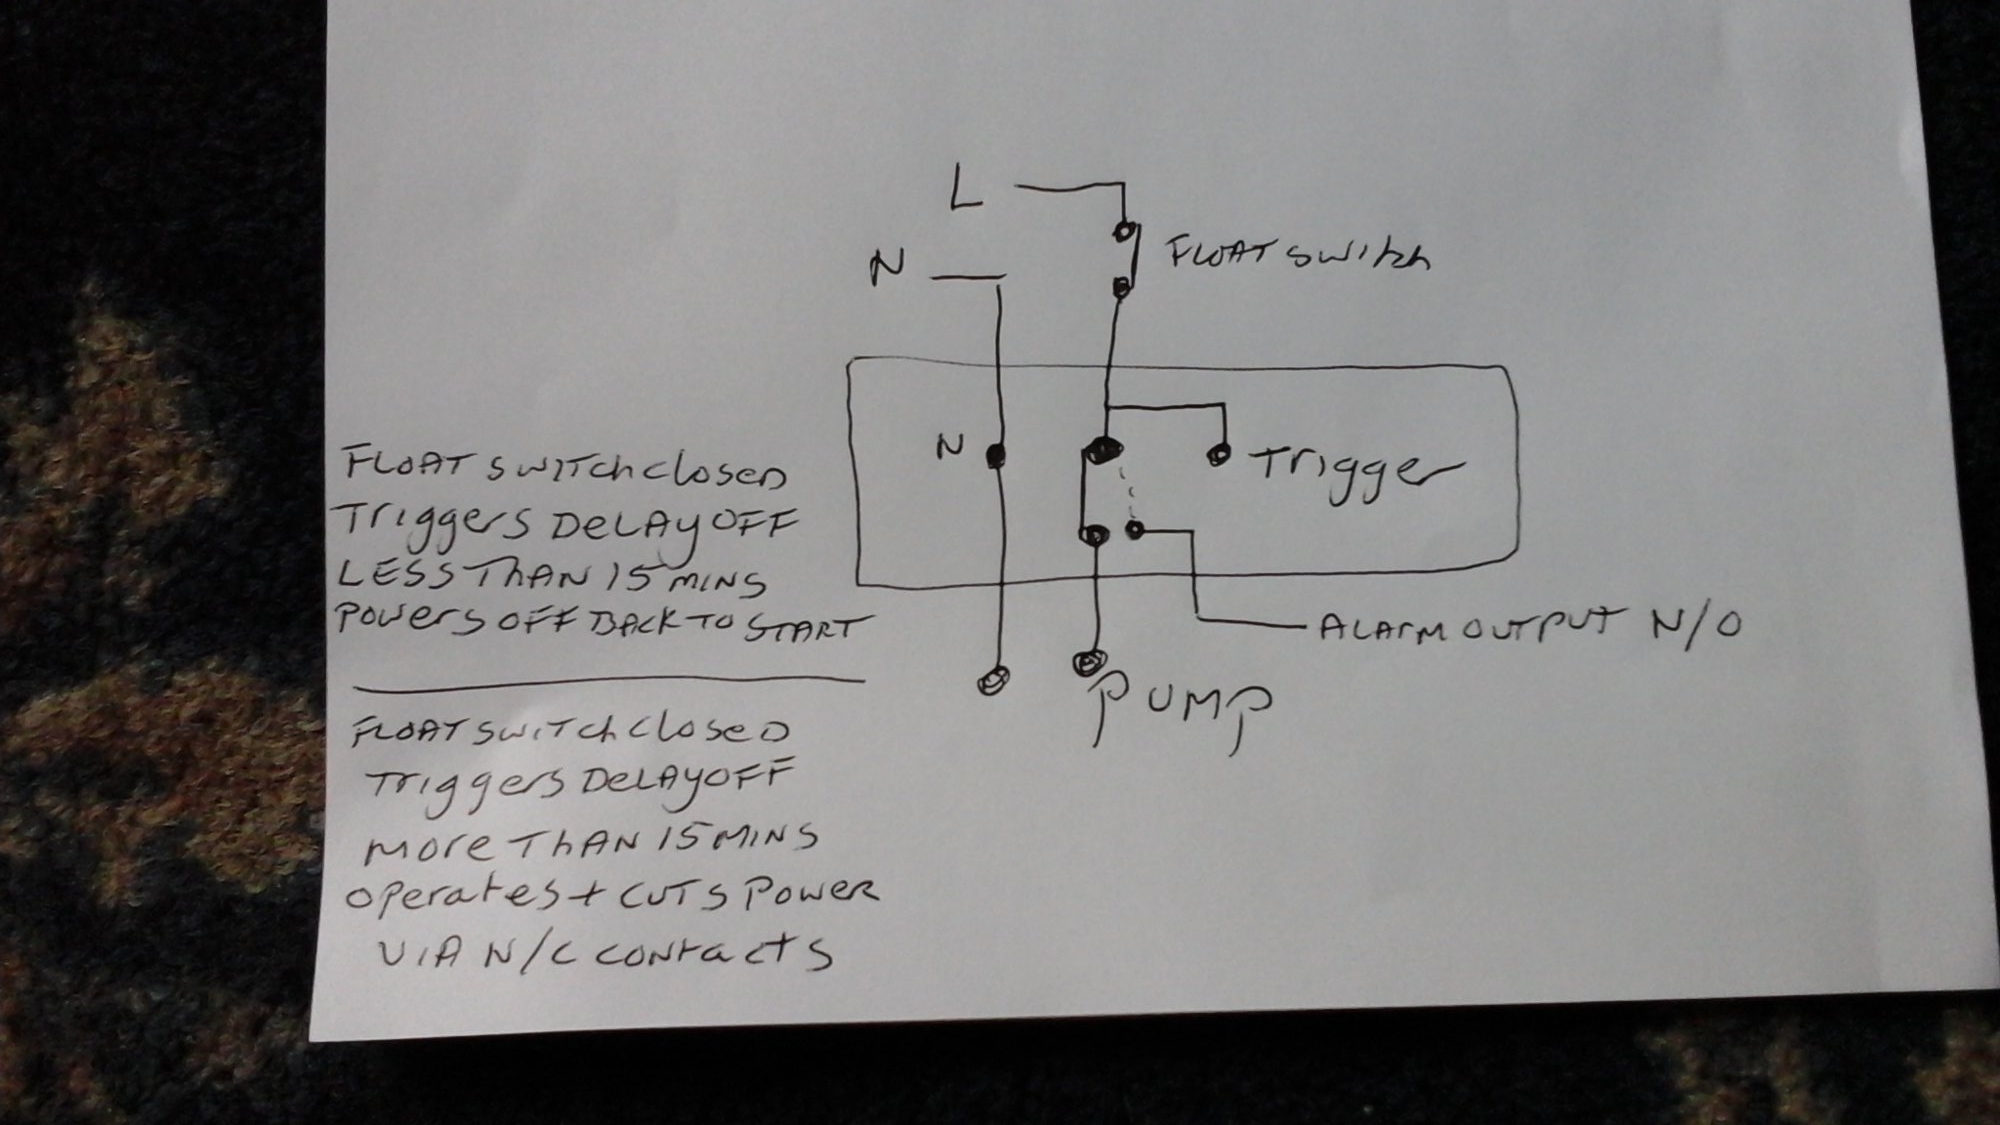 L
N
FLOAT SWITCH
N
Trigger
FLOAT SWITCH CLOSED
TRIGGERS DELAY OFF
LESS THAN 15 MINS
POWERS OFF BACK TO START
ALARM OUTPUT N/O
PUMP
FLOAT SWITCH CLOSED
TRIGGERS DELAY OFF
MORE THAN 15 MINS
OPERATES + CUTS POWER
VIA N/C CONTACTS